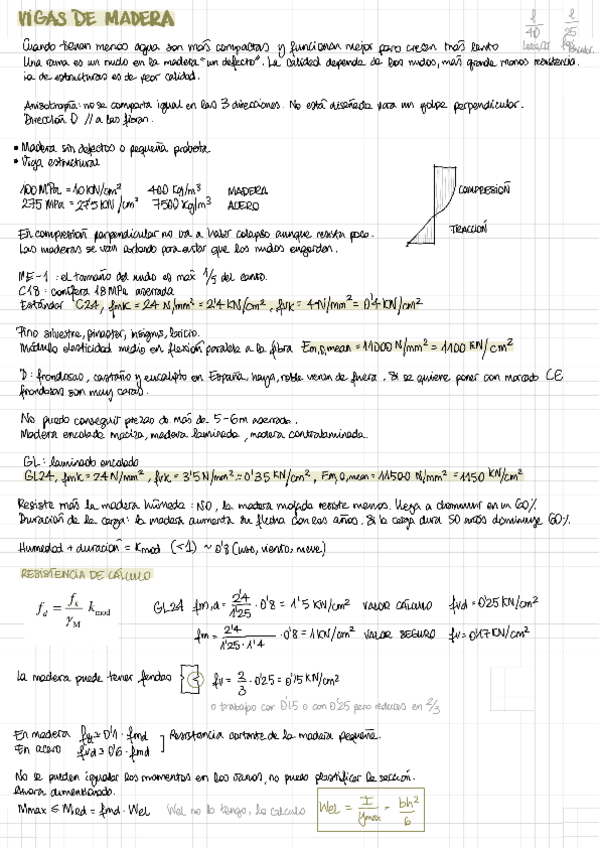 VIGAS DE MADERA
l/40 l/25
Cuando tienen menos agua son más compactas y funcionan mejor pero crecen más lento
Una rama es un nudo en la madera "un defecto". La calidad depende de los nudos, más grande menos resistencia.
ia de estructuras es de peor calidad.
Anisotropía: no se comporta igual en las 3 direcciones. No está diseñada para un golpe perpendicular.
Dirección 0 // a las fibras.
• Madera sin defectos o pequeña probeta
• Viga estructural
100 MPa = 10 KN/cm² 400 Kg/m³ MADERA
275 MPa = 27'5 KN/cm² 7500 Kg/m³ ACERO
COMPRESIÓN
TRACCIÓN
En compresión perpendicular no va a haber colapso aunque resista poco.
Las maderas se van cortando para evitar que los nudos engorden.
ME-1: el tamaño del nudo es max 1/5 del canto.
C18: conífera 18 MPa aserrada
Estándar C24, fmk = 24 N/mm² = 2'4 KN/cm², fvk = 4 N/mm² = 0'4 KN/cm²
Pino silvestre, pinaster, insignis, laricio.
Módulo elasticidad medio en flexión paralela a la fibra Em,0,mean = 11000 N/mm² = 1100 KN/cm²
D: frondosas, castaño y eucalipto en España, haya, roble vienen de fuera. Si se quiere poner con marcado CE
frondosas son muy caras.
No puedo conseguir piezas de más de 5-6m aserrado.
Madera encolada maciza, madera laminada, madera contralaminada.
GL: laminado encolado
GL24, fmk = 24 N/mm², fvk = 3'5 N/mm² = 0'35 KN/cm², Em,0,mean = 11500 N/mm² = 1150 KN/cm²
Resiste más la madera húmeda: NO, la madera mojada resiste menos. Llega a disminuir en un 60%.
Duración de la carga: la madera aumenta su flecha con los años. Si la carga dura 50 años disminuye 60%.
Humedad + duración = Kmod (<1) ~ 0'8 (uso, viento, nieve)
RESISTENCIA DE CÁLCULO
f_d = f_k/γ_M k_mod
GL24 fm,d = 2'4/1'25 · 0'8 = 1'5 KN/cm² VALOR CÁLCULO fvd = 0'25 KN/cm²
fm = 2'4/1'25·1'4 · 0'8 = 1 KN/cm² VALOR SEGURO fv = 0'17 KN/cm²
La madera puede tener fendas fv = 2/3 · 0'25 = 0'15 KN/cm²
o trabajas con 0'15 o con 0'25 pero reduces en 2/3
En madera fvd ≈ 0'1 · fmd
En acero fvd ≈ 0'6 · fmd
Resistencia cortante de la madera pequeña.
No se pueden igualar los momentos en los vanos, no puedo plastificar la sección.
Ahora dimensionado.
Mmax ≤ MRd = fmd · Wel Wel no lo tengo, lo calculo
Wel = I/ymax = bh²/6